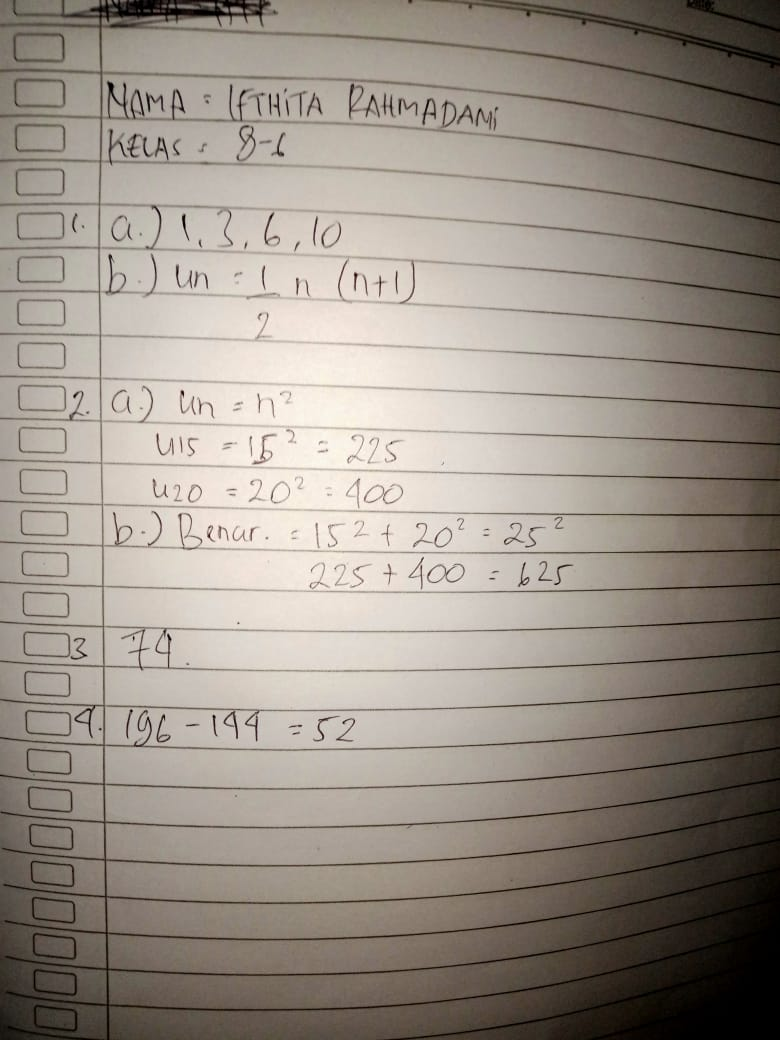 NAMA = IFTHITA RAHMADANI
KELAS : 8-6
1. a.) 1, 3, 6, 10
b.) Un = 1/2 n (n+1)
2. a.) Un = n²
U15 = 15² = 225
U20 = 20² = 400
b.) Benar. = 15² + 20² = 25²
225 + 400 = 625
3 74.
4. 196 - 144 = 52